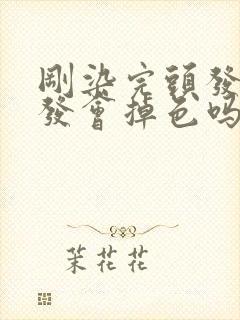 剛染完頭發
發會掉色吗
茉花花